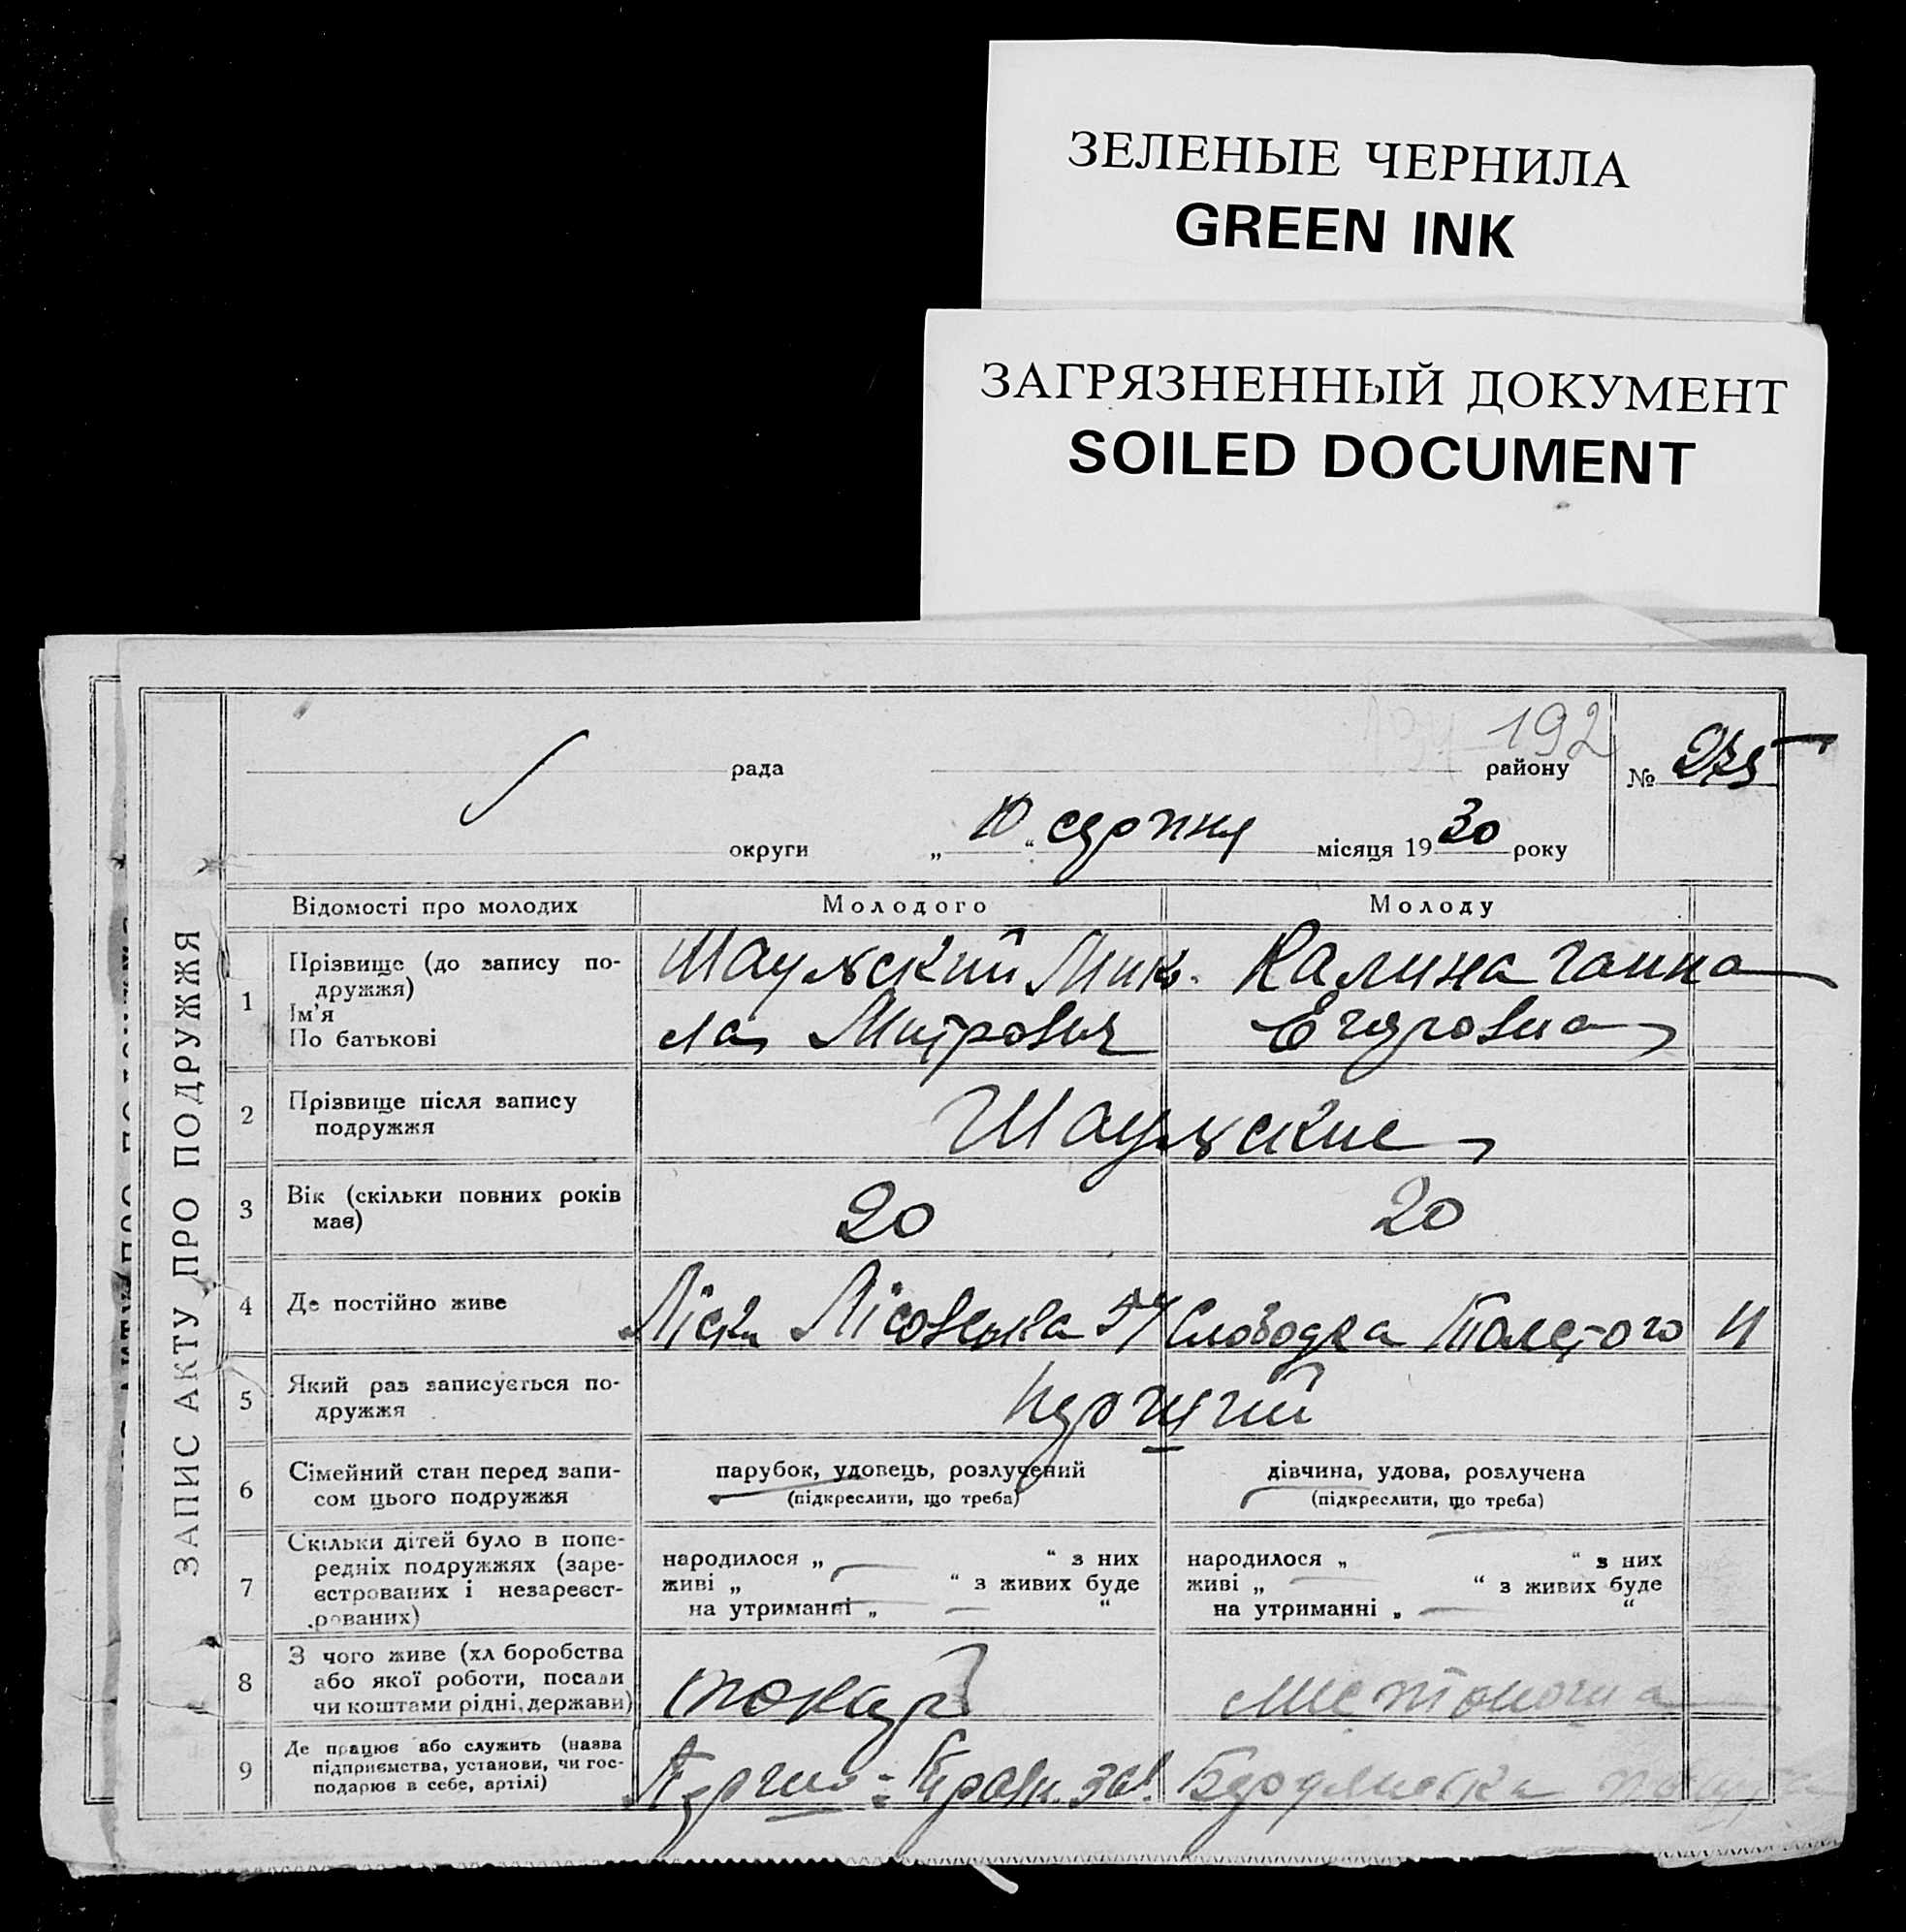 ЗЕЛЕНЫЕ ЧЕРНИЛА
GREEN INK
ЗАГРЯЗНЕННЫЙ ДОКУМЕНТ
SOILED DOCUMENT
ЗАПИС АКТУ ПРО ПОДРУЖЖЯ
192
рада району № 275
округи „ 10 “ серпня місяця 1930 року
Відомості про молодих Молодого Молоду
1 Прізвище (до запису по-
дружжя)
Ім'я
По батькові
Мико- Калина Ганна
ла Митрович Егоровна
2 Прізвище після запису
подружжя
3 Вік (скільки повних років
має)
20 20
4 Де постійно живе
Ліски 57 Слободка Толстого 11
5 Який раз записується по-
дружжя
перший
6 Сімейний стан перед запи-
сом цього подружжя
парубок, удовець, розлучений
(підкреслити, що треба)
дівчина, удова, розлучена
(підкреслити, що треба)
7 Скільки дітей було в попе-
редніх подружжях (заре-
єстрованих і незареєст-
рованих)
народилося „ “ з них
живі „ “ з живих буде
на утриманні „ “
народилося „ “ з них
живі „ “ з живих буде
на утриманні „ “
8 З чого живе (хл боробства
або якої роботи, посади
чи коштами рідні, держави)
токар
9 Де працює або служить (назва
підприємства, установи, чи гос-
подарює в себе, артілі)